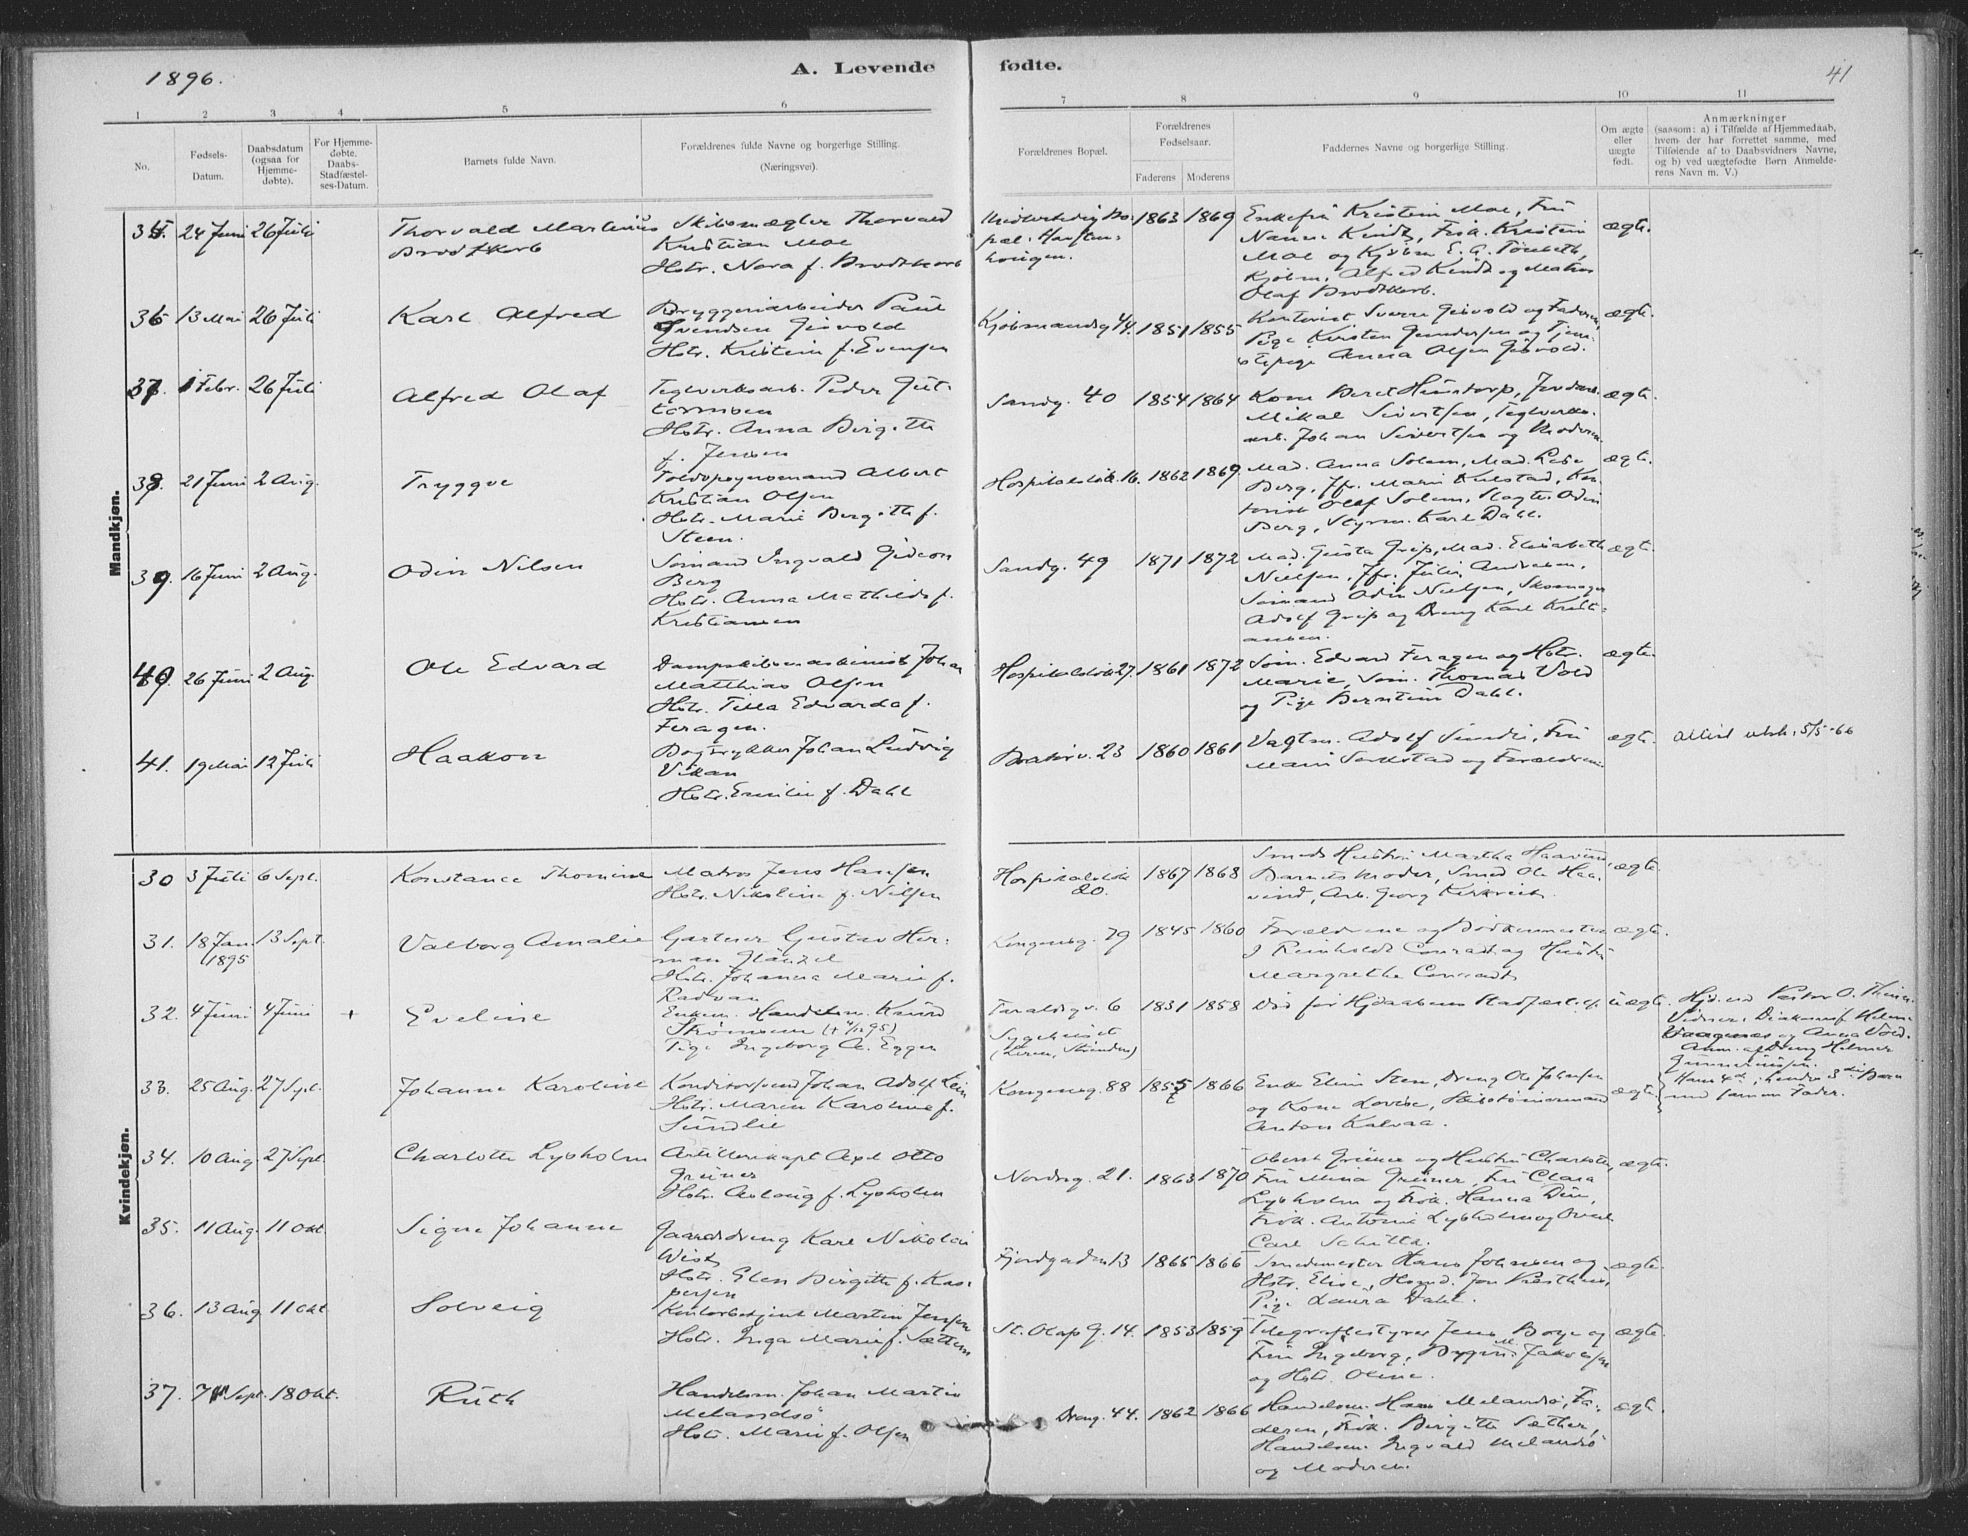 1896.
A. Levende fødte.
41
1 2 3 4 5 6 7 8 9 10 11
No.
Fødsels-Datum.
Daabsdatum (ogsaa for Hjemme-døbte).
For Hjemme-døbte. Daabs-Stadfæstel-ses-Datum.
Barnets fulde Navn.
Forældrenes fulde Navne og borgerlige Stilling. (Næringsvei).
Forældrenes Bopæl.
Forældrenes Fødselsaar.
Faderens Moderens
Faddernes Navne og borgerlige Stilling.
Om ægte eller uægte født.
Anmærkninger
(saasom: a) i Tilfælde af Hjemmedaab,
hvem der har forrettet samme, med
Tilføiende af to Daabsvidners Navne,
og b) ved uægtefødte Børn Anmelde-
rens Navn m. V.)
Mandkjøn.
35. 24 Juni 26 Juli Thorvald Martinius Brodtkorb
Skibsmægler Thorvald
Kristian Moe
Hstr. Nora f. Brodtkorb
1863 1869
Enkefrú Kristin Moe, Frú
Nanna Kindt, Frøk. Kristin
Moe og Kjøbm. E. A. Tønseth,
Kjøbm. Alfred Kindt og Matros
Olaf Brodtkorb.
ægte.
36 13 Mai 26 Juli Karl Alfred
Bryggeriarbeider Paul
Svendsen Gisvold
Hstr. Kristin f. Evensen
Kjøbmandsg. 44. 1851 1855
Kontorist Sverre Gisvold og Faderen,
Pige Kirsten Gundersen og Tjene-
stepige Anna Olsen Gisvold.
ægte.
37 1 Febr. 26 Juli Alfred Olaf
Teglverksarb. Peder Gut-
tormsen
Hstr. Anna Birgitte
f. Jensen
Sandg. 40 1854 1864
Kone Beret Hemstorp,
Mikal Sivertsen, Teglverks-
arb. Johan Sivertsen og Moderen
ægte.
38. 21 Juni 2 Aug. Tryggve
Toldopsynsmand Albert
Kristian Olsen
Hstr. Marie Bergitte f.
Steen.
Hospitalsløk. 16. 1862 1869.
Mad. Anna Solem, Mad. Lise
Berg, Jfr. Marie Kulstad, Kon-
torist Olaf Solem, Slagter Odin
Berg, Styrm. Karl Dahl.
ægte.
39. 16 Juni 2 Aug. Odin Nilsen
Sømand Ingvald Gideon
Berg
Hstr. Anna Mathilde f.
Kristiansen
Sandg. 49 1871 1872
Mad. Gusta Grip, Mad. Elisabeth
Nielsen, Jfr. Julie Andresen,
Sømand Odin Nielsen, Skomager
Adolf Grip og Dreng Karl Kristi-
ansen.
ægte.
40. 26 Juni 2 Aug. Ole Edvard
Dampskibsmaskinist Johan
Matthias Olsen
Hstr. Tilla Edvarda f.
Feragen.
Hospitalsløk. 27. 1861 1872
Søm. Edvard Feragen og Hstr.
Marie, Søm. Thomas Vold
og Pige Berntine Dahl.
ægte.
41. 19 Mai 12 Juli Haakon
Bogtrykker Johan Ludvig
Vikan
Hstr. Emilie f. Dahl
23 1860 1861
Vagtm. Adolf Sundli, Frú
Marie Sørkstad og Forældrene
ægte.
Attest utst. 5/5-66
Kvindekjøn.
30 3 Juli 6 Sept. Konstance Thomine
Matros Jens Hansen
Hstr. Nikoline f. Nilsen
Hospitalsløk. 20. 1867 1868
Smeds Hustru Martha Haavind,
Barnets Moder, Smed Ole Haa-
vind, Arb. Georg Kirkreit.
ægte.
31. 18 Jan. 1895 13 Sept. Valborg Amalie
Gartner Gustav Her-
man Gläuzel
Hstr. Johanna Marie f.
Radvan
Kongensg. 79 1845 1860
Forældrene og Bødkermester
J. Reinholdt Conradt og Hustru
Margrethe Conradt
ægte.
32. 4 Juni 4 Juni + Eveline
Enkem. Handelsm. Knud
Strømsem (+ 4/12 95)
Pige Ingeborg A. Eggen
Taraldsgv. 6
Sygehuset
(Leren, Strinden)
1831 1858
Død før Hjdaabens Stadfæstelse
uægte.
Hjd. ved Pastor O. Thiis.
Vidner: Diakonisse Helene
Vaagenes og Anna Vold.
Anm. af Dreng Helmer
Gunnerussen.
Hans 4de, hendes 3die Barn
med samme Fader.
33. 25 Aug. 27 Sept. Johanne Karoline
Konditorsvend Johan Adolf Lein
Hstr. Maren Karoline f.
Sundlie
Kongensg. 88 1855 1866
Enke Elen Sten, Dreng Ole Johansen
og Kone Lovise, Skibstømmermand
Anton Kalvaa.
ægte.
34. 10 Aug. 27 Sept. Charlotte Lysholm
Artillerikapt. Axel Otto
Grüner
Hstr. Aslaug f. Lysholm
Nordreg. 21. 1863 1870
Oberst Grüner og Hustru Charlotte,
Frú Mina Grüner, Frú Clara
Lysholm og Frøk. Hanna Due,
Frøk. Antonie Lysholm og
Carl Schulth.
ægte.
35. 11 Aug. 11 Okt. Signe Johanne
Gaardsdreng Karl Nikolai
Wist
Hstr. Elen Birgitte f. Kas-
persen
Fjordgaden 13 1865 1866
Smedmester Hans Johnsen og
Hstr. Elise, Hsmd. Jon Præsthus,
Pige Laura Dahl.
ægte.
36. 13 Aug 11 Okt Solveig
Kontorbetjent Martin Jensen
Hstr. Inga Marie f. Sættem
St. Olafs G. 14. 1853 1859
Telegrafbestyrer Jens Boye og
Frú Ingeborg, Bygm. Jakobsen
og Hstr. Oline.
ægte.
37. 7 Sept. 18 Okt. Ruth
Handelsm. Johan Martin
Melandsø
Hstr. Marie f. Olsen
Drong. 44. 1862 1866
Handelsm. Hans Melandsø, Fa-
deren, Frøk. Birgitte Sæther,
Handelsm. Ingvald Melandsø
og Moderen.
ægte.